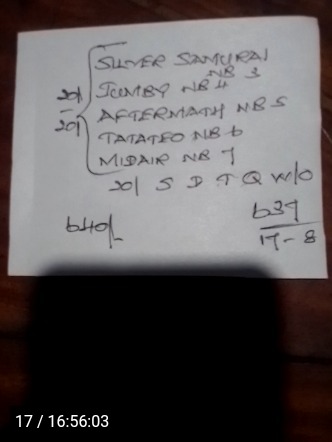 SILVER SAMURAI
NB 3
JUMBY NB 4
20/
20/
AFTERMATH NB 5
TATATEO NB 6
MIDAIR NB 7
20/ S D T Q W/O
640/-
637
17-8
17 / 16:56:03